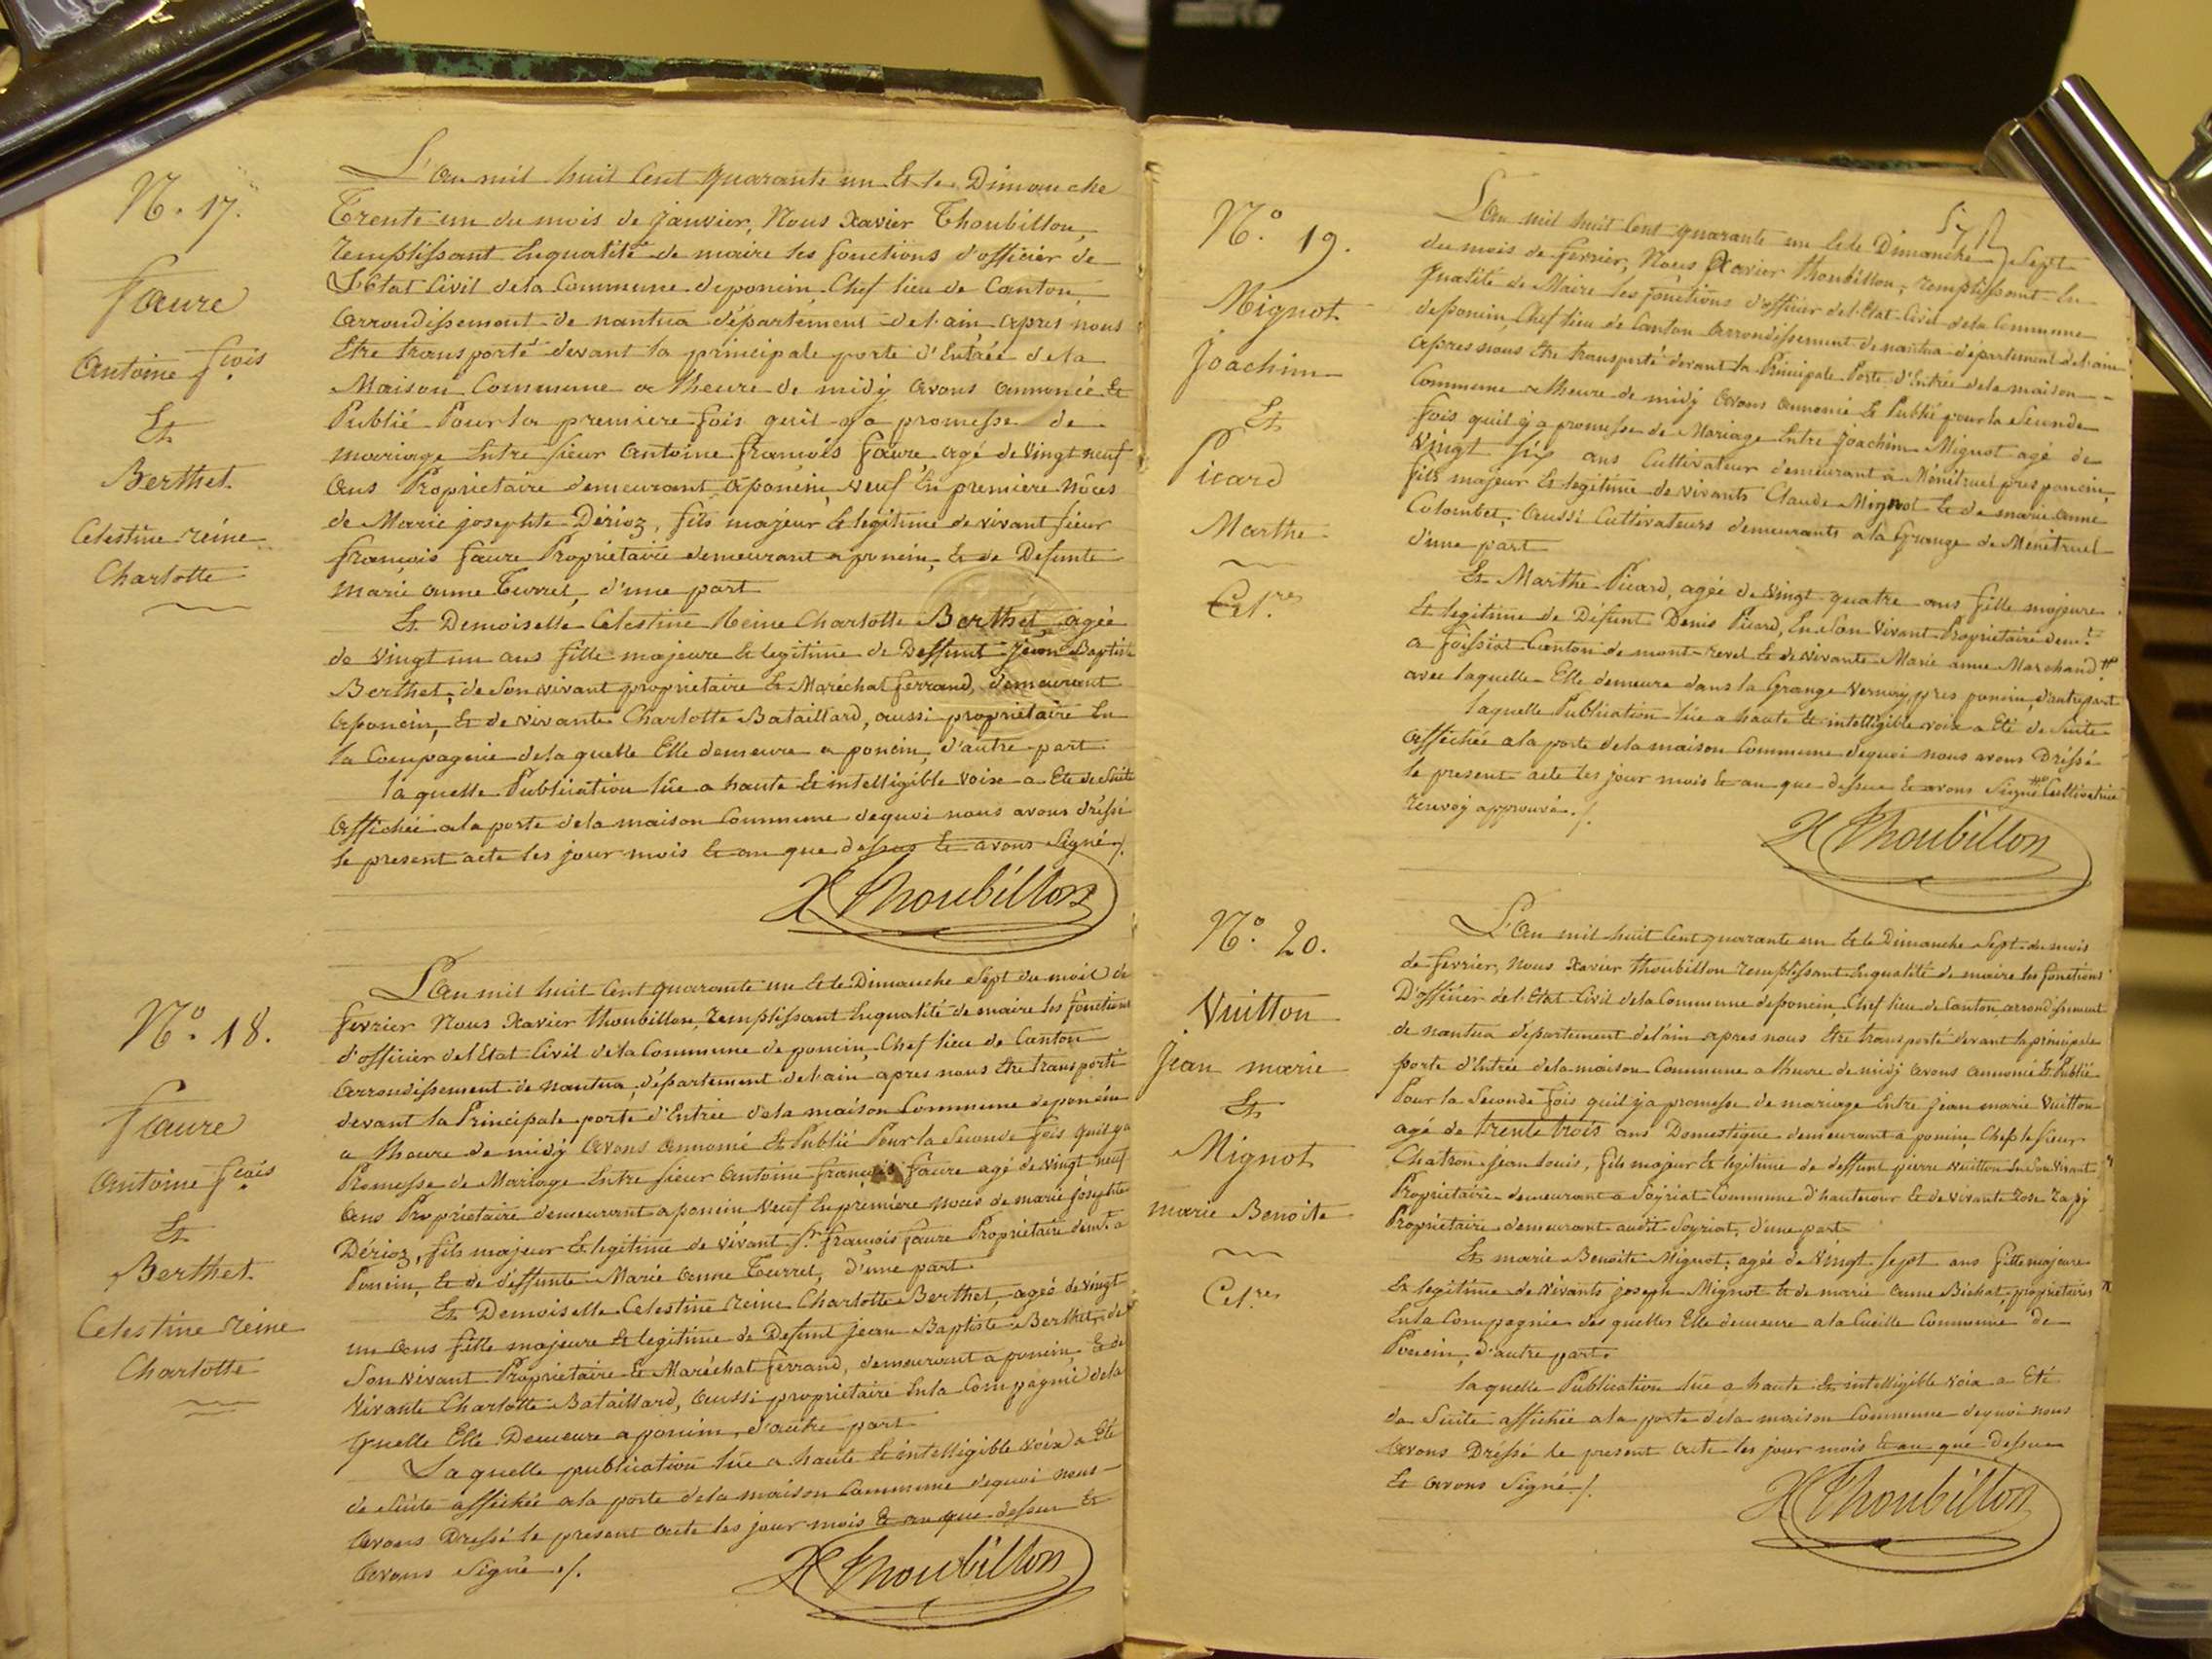 N. 17.
Faure
Antoine fçois
Et
Berthet
Celestine reine
Charlotte
L'an mil huit Cent quarante un Et le Dimanche
Trente un du mois de janvier, Nous Xavier Thoubillon,
remplissant Enqualité de maire les fonctions d'officier de
L'Etat Civil dela Commune deponcin Chef lieu de Canton
arrondissement de nantua département del'ain apres nous
Etre transporté devant la principale porte d'Entrée dela
Maison Commune a lheure de midÿ avons annoncé Et
Publié Pour la premiere fois quil ÿ a promesse de
mariage Entre sieur Antoine françois faure agé de Vingt neuf
ans Propriétaire demeurant aponcin, veuf En premiere nôces
de Marie josephte Dérioz, fils majeur & legitime de vivant sieur
françois faure Propriétaire demeurant a poncin, & de Defunte
Marie anne Turrel, d'une part
Et Demoiselle Celestine Reine Charlotte Berthet, agée
de Vingt un ans fille majeure & legitime de Deffunt Jean Baptiste
Berthet, de Son vivant propriétaire & Maréchal ferrand, demeurant
aponcin, & de vivante Charlotte Bataillard, aussi propriétaire En
la Compagnie dela quelle Elle demeure a poncin, d'autre part
la quelle Publication lüe a haute & intelligible voix a Eté de Suite
affichée ala porte dela maison Commune dequoi nous avons dréssé
le present acte les jour mois & an que dessus & avons Signé ./.
X Thoubillon
N.o 18.
Faure
Antoine fçois
Et
Berthet
Celestine reine
Charlotte
L'an mil huit Cent quarante un Et le Dimanche Sept du mois de
fevrier Nous Xavier thoubillon, remplissant Enqualité de maire les fonctions
d'officier del'Etat Civil dela Commune de poncin, Chef lieu de Canton
arrondissement de nantua, département del'ain apres nous Etre transporté
devant la Principale porte d'Entrée dela maison Commune deponcin
a lheure de midÿ avons annoncé Et Publié Pour la Seconde fois quil ÿ a
Promesse de Mariage Entre sieur Antoine françois faure agé de vingt neuf
ans Propriétaire demeurant a poncin Veuf En première noces de marie josephte
Dérioz, fils majeur & legitime de vivant Sr. françois faure Propriétaire demt. a
Poncin, & de deffunte Marie Anne Turrel, d'une part
Et Demoiselle Celestine reine Charlotte Berthet, agée de vingt
un ans fille majeure & legitime de Defunt jean Baptiste Berthet, de
Son vivant Propriétaire & Maréchal ferrand, demeurant a poncin, & de
vivante Charlotte Bataillard, aussi propriétaire Enla Compagnie dela
quelle Elle Demeure a poncin, d'autre part
La quelle publication lüe a haute & intelligible voix a Eté
de Suite affichée ala porte dela maison Commune dequoi nous
avons Dressé le present acte les jour mois & an que dessus &
avons Signé ./.
X Thoubillon
N.o 19.
Mignot
Joachim
Et
Picard
Marthe
Cel.res
L'an mil huit Cent quarante un & le Dimanche Sept
du mois de fevrier, Nous Xavier thoubillon, remplissant En
qualité de Maire les fonctions d'officier del'Etat Civil dela Commune
deponcin, Chef lieu de Canton arrondissement de nantua département del'ain
apres nous Etre transporté devant la Principale Porte d'Entrée dela maison
Commune a lheure de midÿ avons annoncé & Publié pour la Seconde
fois quil ÿ a promesse de Mariage Entre joachim Mignot agé de
Vingt six ans Cultivateur demeurant a Ménétruel pres poncin,
fils majeur & legitime de vivants Claude Mignot & de marie anne
Colombet, aussi Cultivateurs demeurants ala Grange de Menetruel
d'une part
Et Marthe Picard, agée de Vingt quatre ans fille majeure
& legitime de Défunt Denis Picard, En Son Vivant Propriétaire demt.
a foissiat Canton de mont-revel & de vivante Marie anne Marchand #
avec laquelle Elle demeure dans la Grange pres poncin d'autrepart
laquelle Publication lüe a haute & intelligible voix a Eté de Suite
affichée ala porte dela maison Commune dequoi nous avons Dréssé
le present acte les jour mois & an que dessus & avons Signé # Cultivatrice
renvoÿ approuvé ./.
X Thoubillon
N.o 20.
Vuitton
Jean marie
Et
Mignot
marie Benoite
Cel.res
L'an mil huit Cent quarante un & le Dimanche Sept du mois
de fevrier, Nous Xavier thoubillon remplissant Enqualité de maire les fonctions
D'officier del'Etat Civil dela Commune deponcin Chef lieu de Canton arrondissement
de nantua département del'ain apres nous Etre transporté devant la principale
porte d'Entrée dela maison Commune a lheure de midÿ avons annoncé & Publié
Pour la Seconde fois quil ÿ a promesse de mariage Entre jean marie Vuitton
agé de trente trois ans Domestique demeurant a poncin Chess le sieur
Chatron jean louis, fils majeur & legitime de deffunt pierre vuitton En Son Vivant
Propriétaire demeurant a Soÿriat Commune d'hautecour & de vivante rose
Propriétaire demeurant audit Soyriat, d'une part
Et marie Benoite Mignot, agée de Vingt sept ans fille majeure
& legitime de Vivants joseph Mignot & de marie anne Bichat, propriétaires
Enla Compagnie des quelles Elle demeure ala Cueille Commune de
Poncin, d'autre part.
laquelle Publication lüe a haute & intelligible voix a Eté
de Suite affichée ala porte dela maison Commune dequoi nous
avons Dréssé le present acte les jour mois & an que Dessus
& avons Signé ./.
X Thoubillon